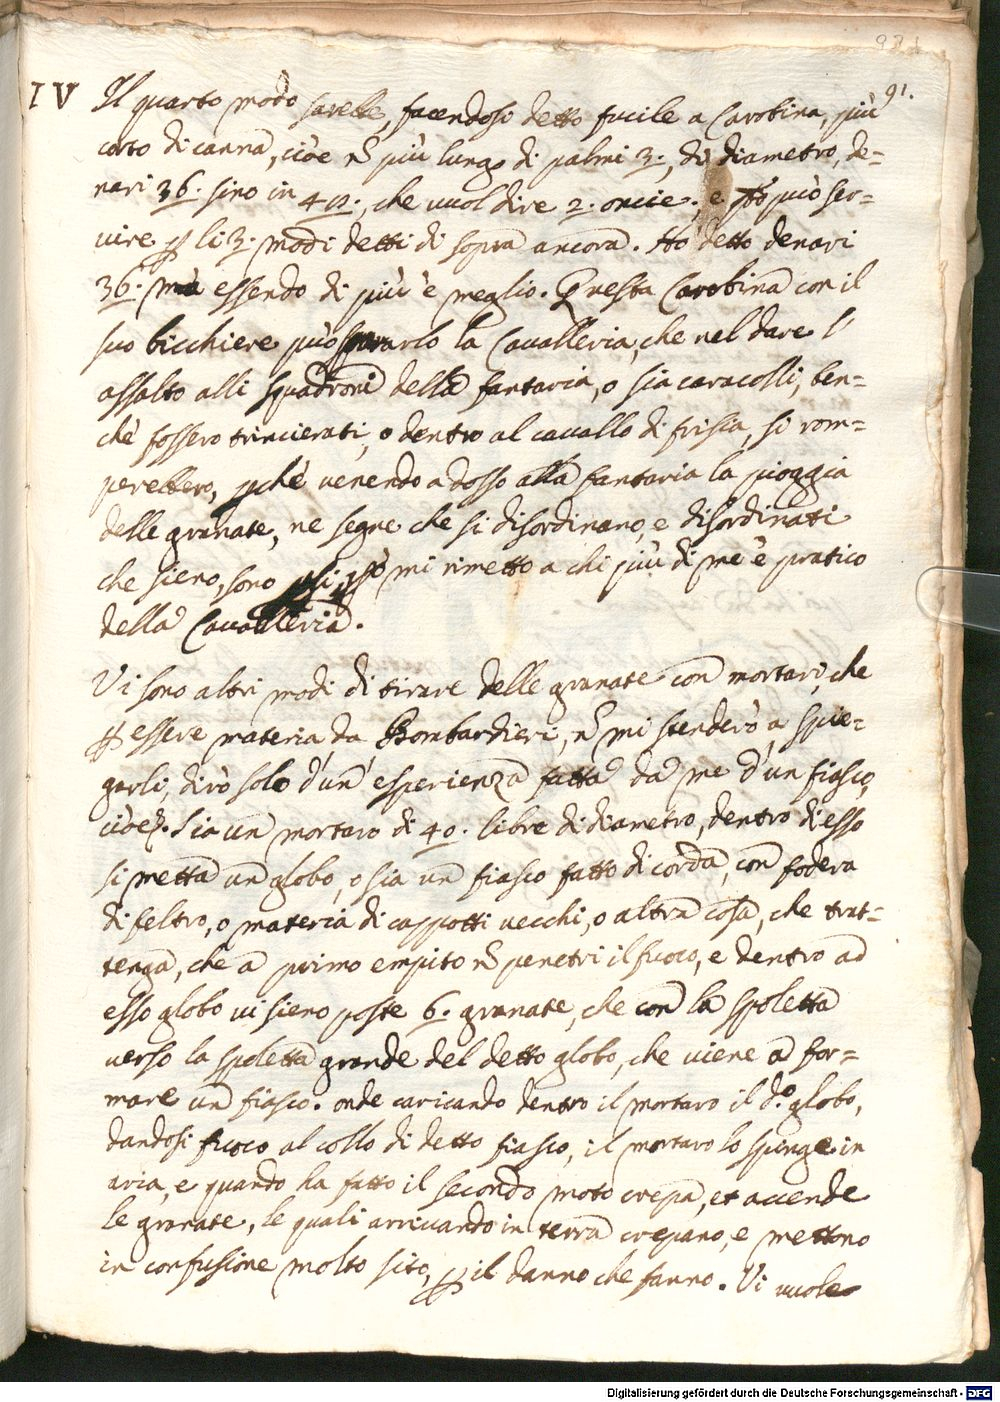 91.
IV Il quarto modo sarebbe, facendosi detto fucile a Carobina, più
corto di canna, cióe ñ più lungo di palmi 3., di diametro, de=
nari 36. sino in 42., che vuol dire 2. oncie., e può ser=
uire ꝑ li 3. modi detti di sopra ancora. Hò detto denari
36. mà essendo di più è meglio. Questa Carobina con il
suo bicchiere può spararlo la Cavalleria, che nel dare l'
assalto alli squadroni della fantaria, o sia caracolli, ben=
chè fossero trincierati, o dentro al cavallo di frisia, si rom=
perebbero, ꝑchè venendo adosso alla fantaria la pioggia
delle granate, ne segue che si disordinano, e disordinati
che sieno, sono mi rimetto a chi più di me è pratico
della Cavalleria.
Vi sono altri modi di tirare delle granate con mortari, che
ꝑ essere materia da Bombardieri, ñ mi stenderò a spie=
garli, dirò solo d'un' esperienza fatta da me d'un fiasco,
cióe. Sia un mortaro di 40. libre di diametro, dentro di esso
si metta un globo, o sia un fiasco fatto di corda, con fodera
di feltro, o materia di cappotti vecchi, o altra cosa, che trat=
tenga, che a primo empito ñ penetri il fuoco, e dentro ad
esso globo vi sieno poste 6. granate, che con la spoletta
verso la spoletta grande del detto globo, che viene a for=
mare un fiasco. onde caricando dentro il mortaro il d.º globo,
dandosi fuoco al collo di detto fiasco, il mortaro lo spinge in
aria, e quando ha fatto il secondo moto crepa, et accende
le granate, le quali arrivando in terra crepano, e mettono
in confusione molto sito, ꝑ il danno che fanno. Vi vuole
Digitalisierung gefördert durch die Deutsche Forschungsgemeinschaft - DFG